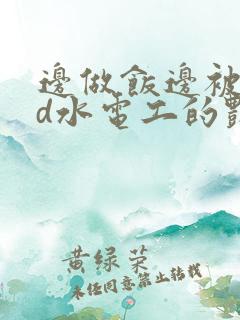 邊做飯邊被
d水電工的
黄绿荣
未经同意禁止转载